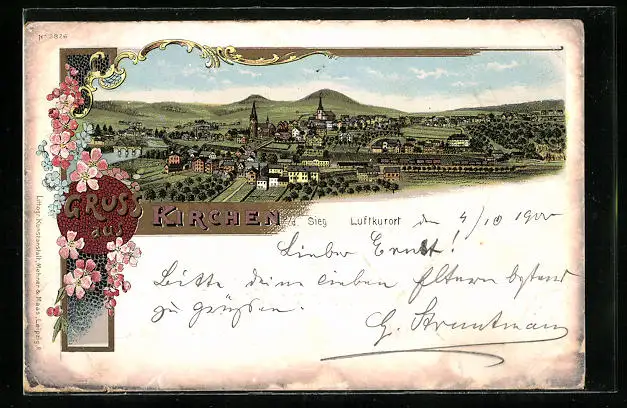 No 3826
GRUSS
aus
KIRCHEN a. d. Sieg Luftkurort den 4/10 1900
Lieber Ernst!
Bitte deine lieben Eltern bestens
zu grüßen.
G.
Lithogr. Kunstanstalt, Mehner & Maas, Leipzig-R.